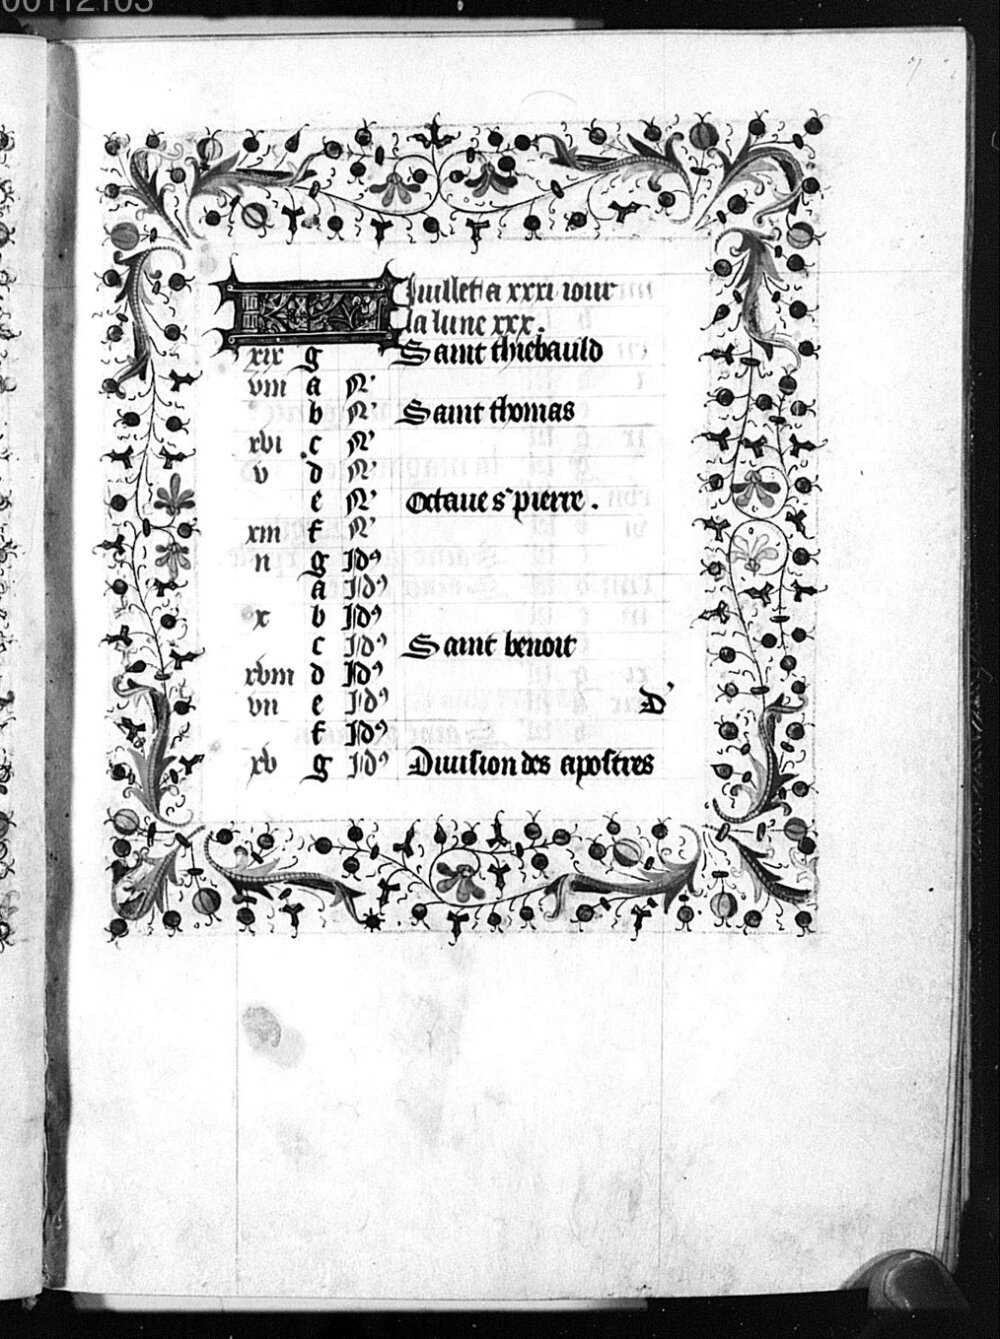 00112103
KL Juillet a xxxi iour
la lune xxx.
xix g Saint thiebauld
viii a N'
b N' Saint thomas
xvi c N'
v d N'
e N' Octaue s' pierre.
xiii f N'
ii g Id'
a Id'
x b Id'
c Id' Saint benoit
xviii d Id'
vii e Id' D'
f Id'
xv g Id' Diuision des apostres